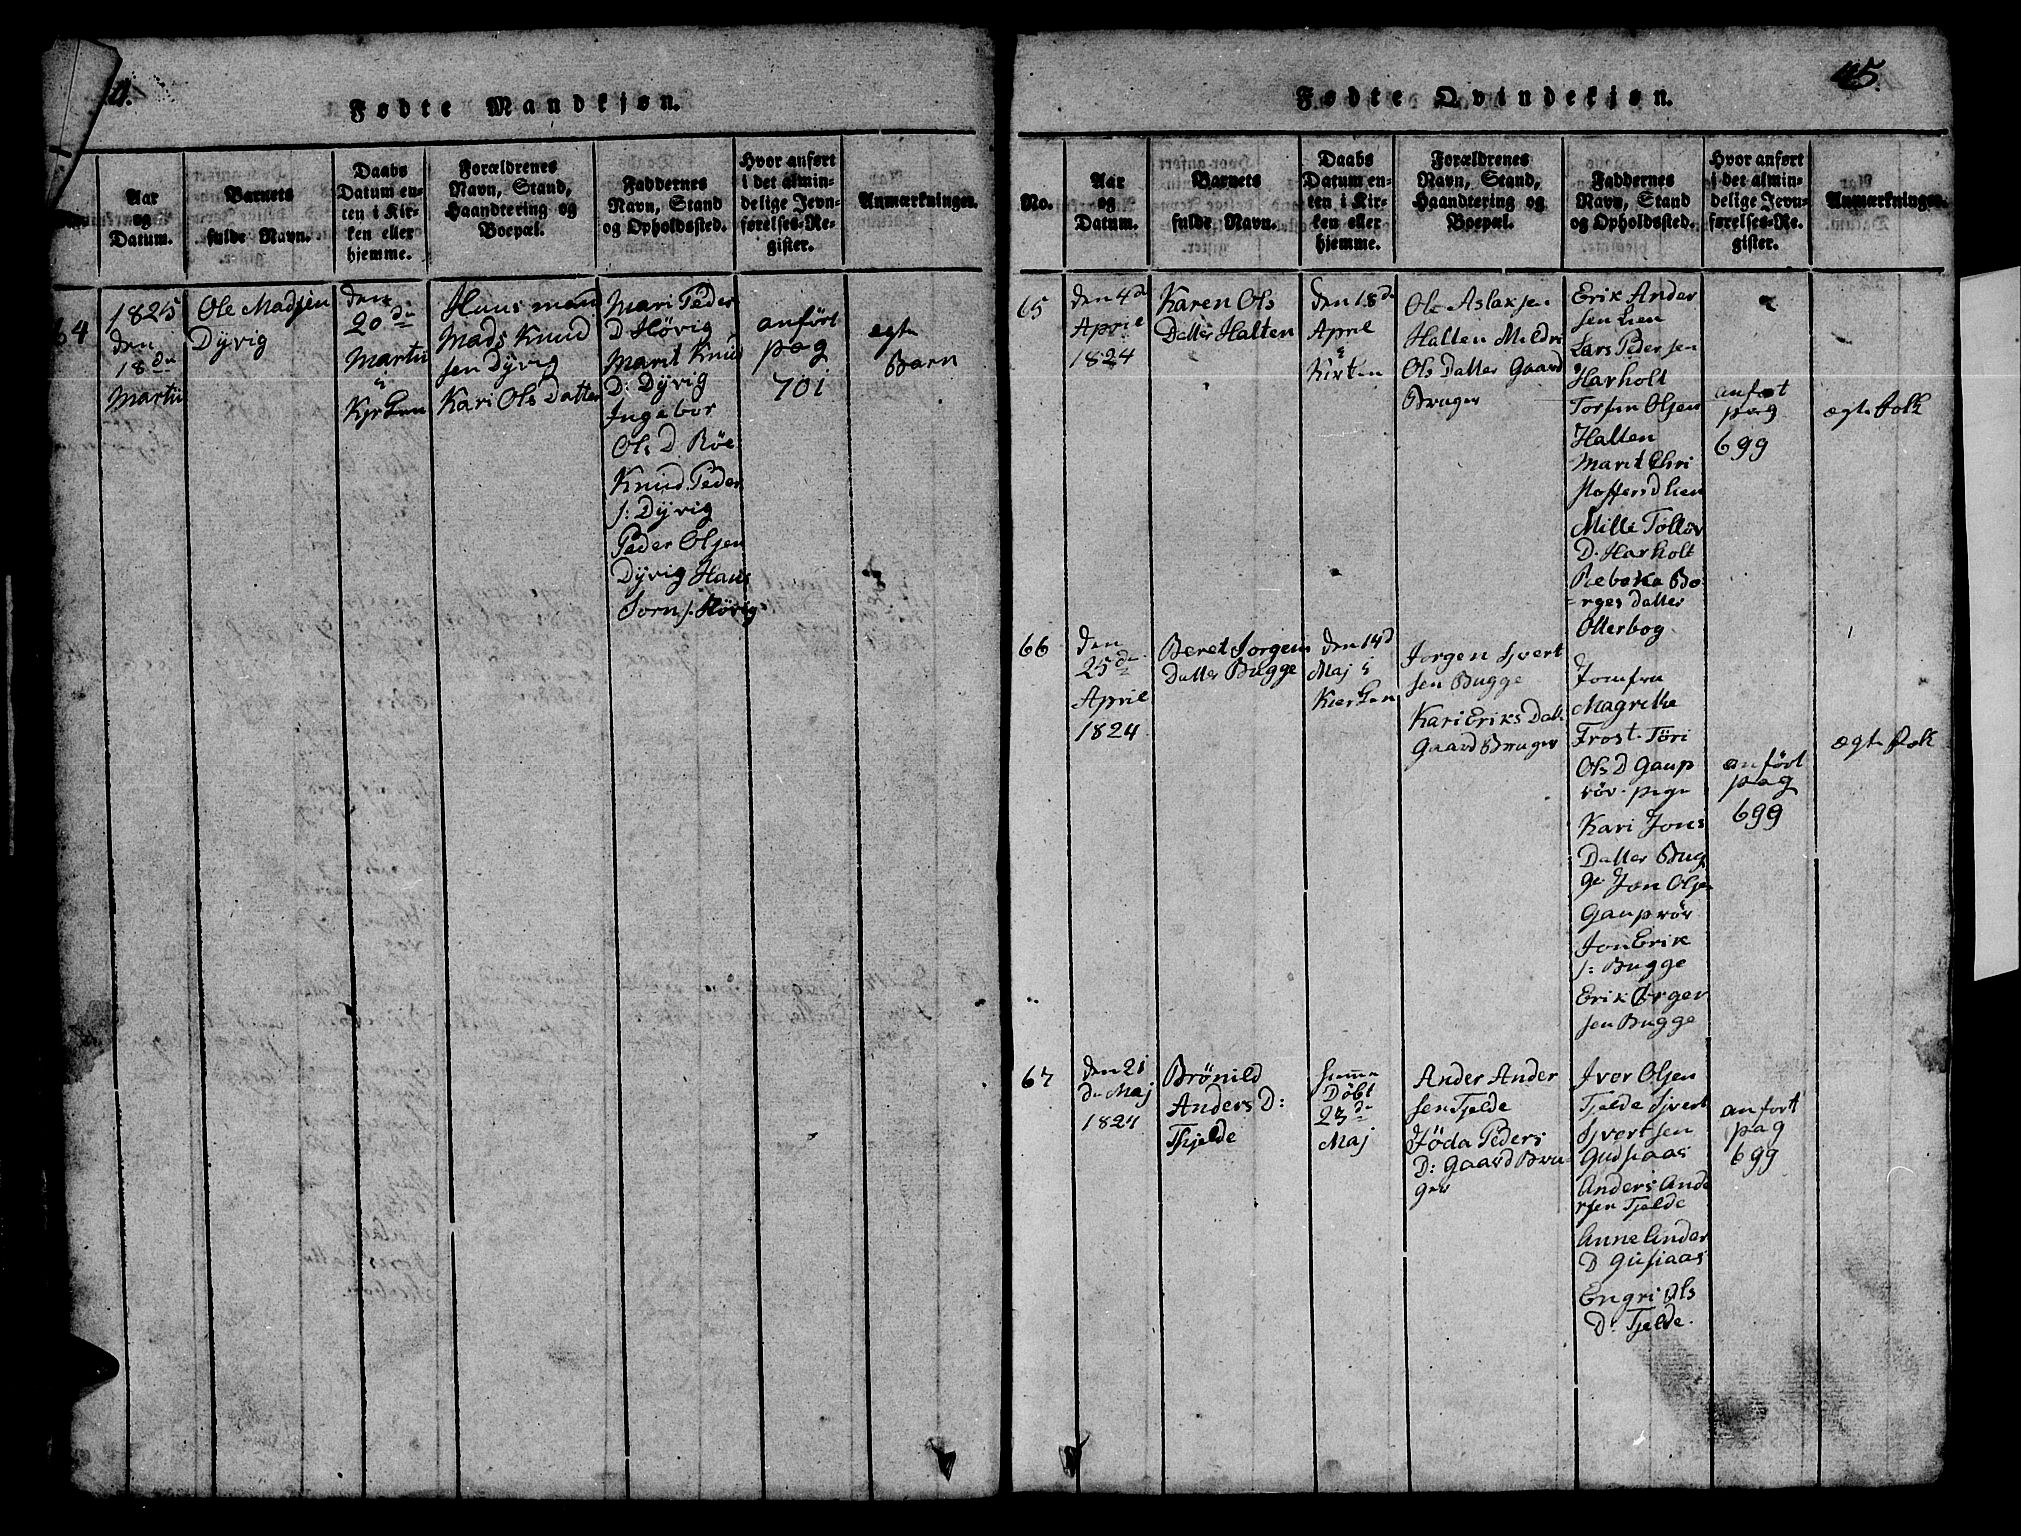 4.
Fødte Mandkjøn.
Aar og Datum.
Barnets fulde Navn.
Daabs Datum enten i Kirken eller hjemme.
Forældrenes Navn, Stand, Haandtering og Boepæl.
Faddernes Navn, Stand og Opholdssted.
Hvor anført i det almindelige Jevnførelses-Register.
Anmærkninger.
64
1825
den
18de
Martii
Ole Madsen
Dÿvig
den
20de
Martii
i
Kirken
Huusmand
Mads Knud
sen Dÿvig
Kari Ols Datter
Mari Peder
D Høvig
Marit Knud
D: Dÿvig
Ingebor
Ols D. Röe
Knud Peder
s: Dÿvig
Peder Olsen
Dÿvig Hans
Jorn s: Høvig
anført
pag
701
egte
Barn
45.
Fødte Qvindekjøn.
No.
Aar og Datum.
Barnets fulde Navn.
Daabs Datum enten i Kirken eller hjemme.
Forældrenes Navn, Stand, Haandtering og Boepæl.
Faddernes Navn, Stand og Opholdssted.
Hvor anført i det almindelige Jevnførelses-Register.
Anmærkninger.
65
den 4de
April
1824
Karen Ols
Datter Halten
den 18de
April
i
Kirken
Ole Aslaksen
Halten Mildri
Ols Datter Gaard
Bruger
Erik Ander
sen Lien
Lars Pedersen
Harholt
Torsten Olsen
Halten
Marit Chri
stoffersd Lien
Mille Tollov
D. Harholt
Rebeka Bo
rges Datter
Otterbog
anført
pag
699
egte Folk
66
den
25de
April
1824
Beret Jorgens
Datter Bugge
den 14d
Maj i
Kierken
Jorgen Sjvert
sen Bugge
Kari Eriks Datt
Gaard Bruger
Jomfru
Magrethe
Frost. Töri
Ols D Gaup
rör. pige
Kari Jons
Datter Bug
ge. Jon Olsen
Gauprör
Jon Erik
s: Bugge
Erik Ørgen
sen Bugge
anført
pag
699
egte Folk
67
den 21
de Maj
1824
Brönild
Anders D:
Thjelde
hiemme
Døbt
23de
Maj
Ander Ander
sen Tjelde
Jöda Peders
D: Gaard Bru
ger
Iver Olsen
Tjelde Sjvert
Sjvertsen
Gudsiaas
Anders Ande
rsen Tjelde
Anne Ander
D Gusiaas
Engri Ols
D: Tjelde.
anført
pag
699